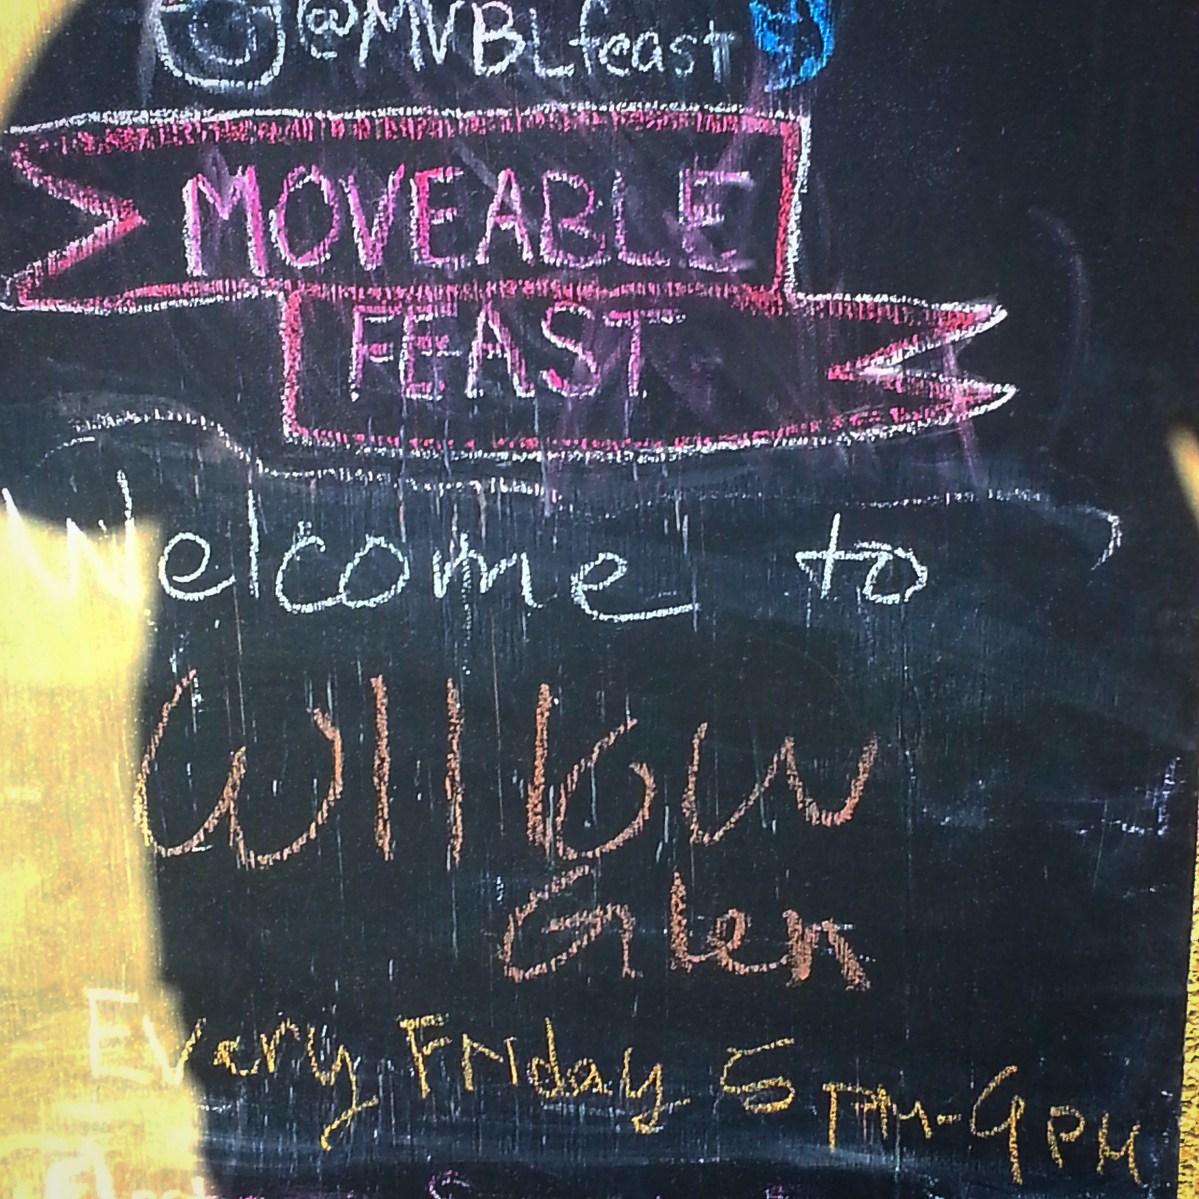 @MVBLfeast
MOVEABLE
FEAST
Welcome to
Willow
Glen
Every Friday 5PM-9PM